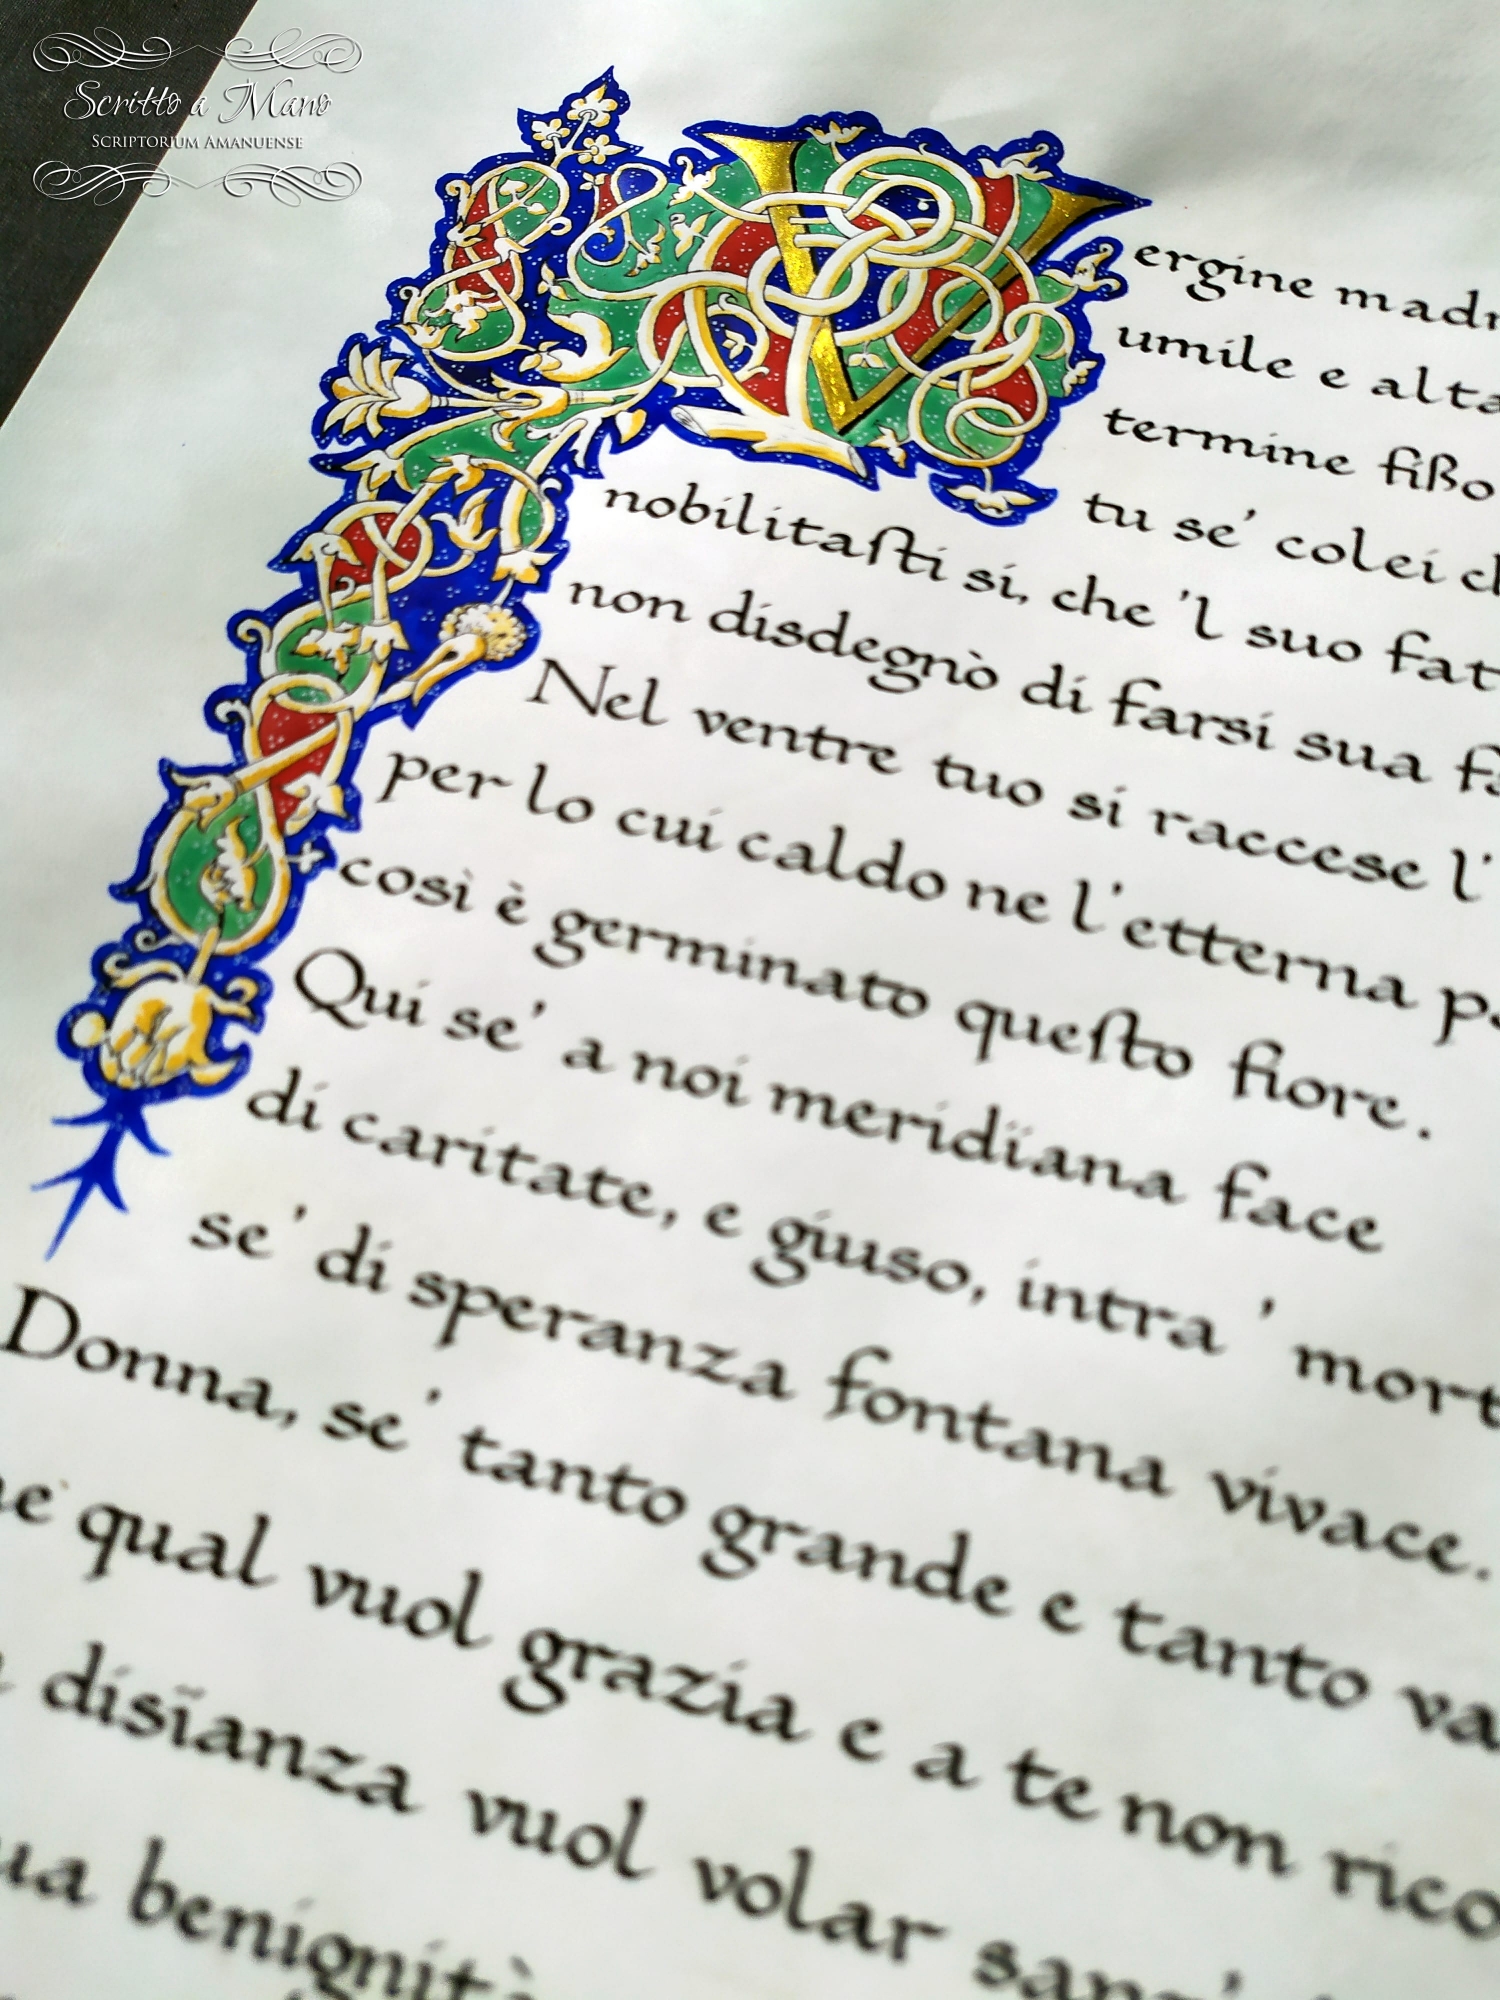 Scritto a Mano
SCRIPTORIUM AMANUENSE
Vergine madr
umile e alta
termine fißo
tu se' colei ch
nobilitaſti sì, che 'l suo fatt
non disdegnò di farsi sua fa
Nel ventre tuo si raccese l'
per lo cui caldo ne l'etterna pa
così è germinato queſto fiore.
Qui se' a noi meridïana face
di caritate, e giuso, intra ' mort
se' di speranza fontana vivace.
Donna, se' tanto grande e tanto va
he qual vuol grazia e a te non rico
disïanza vuol volar sanz'
ua benignità